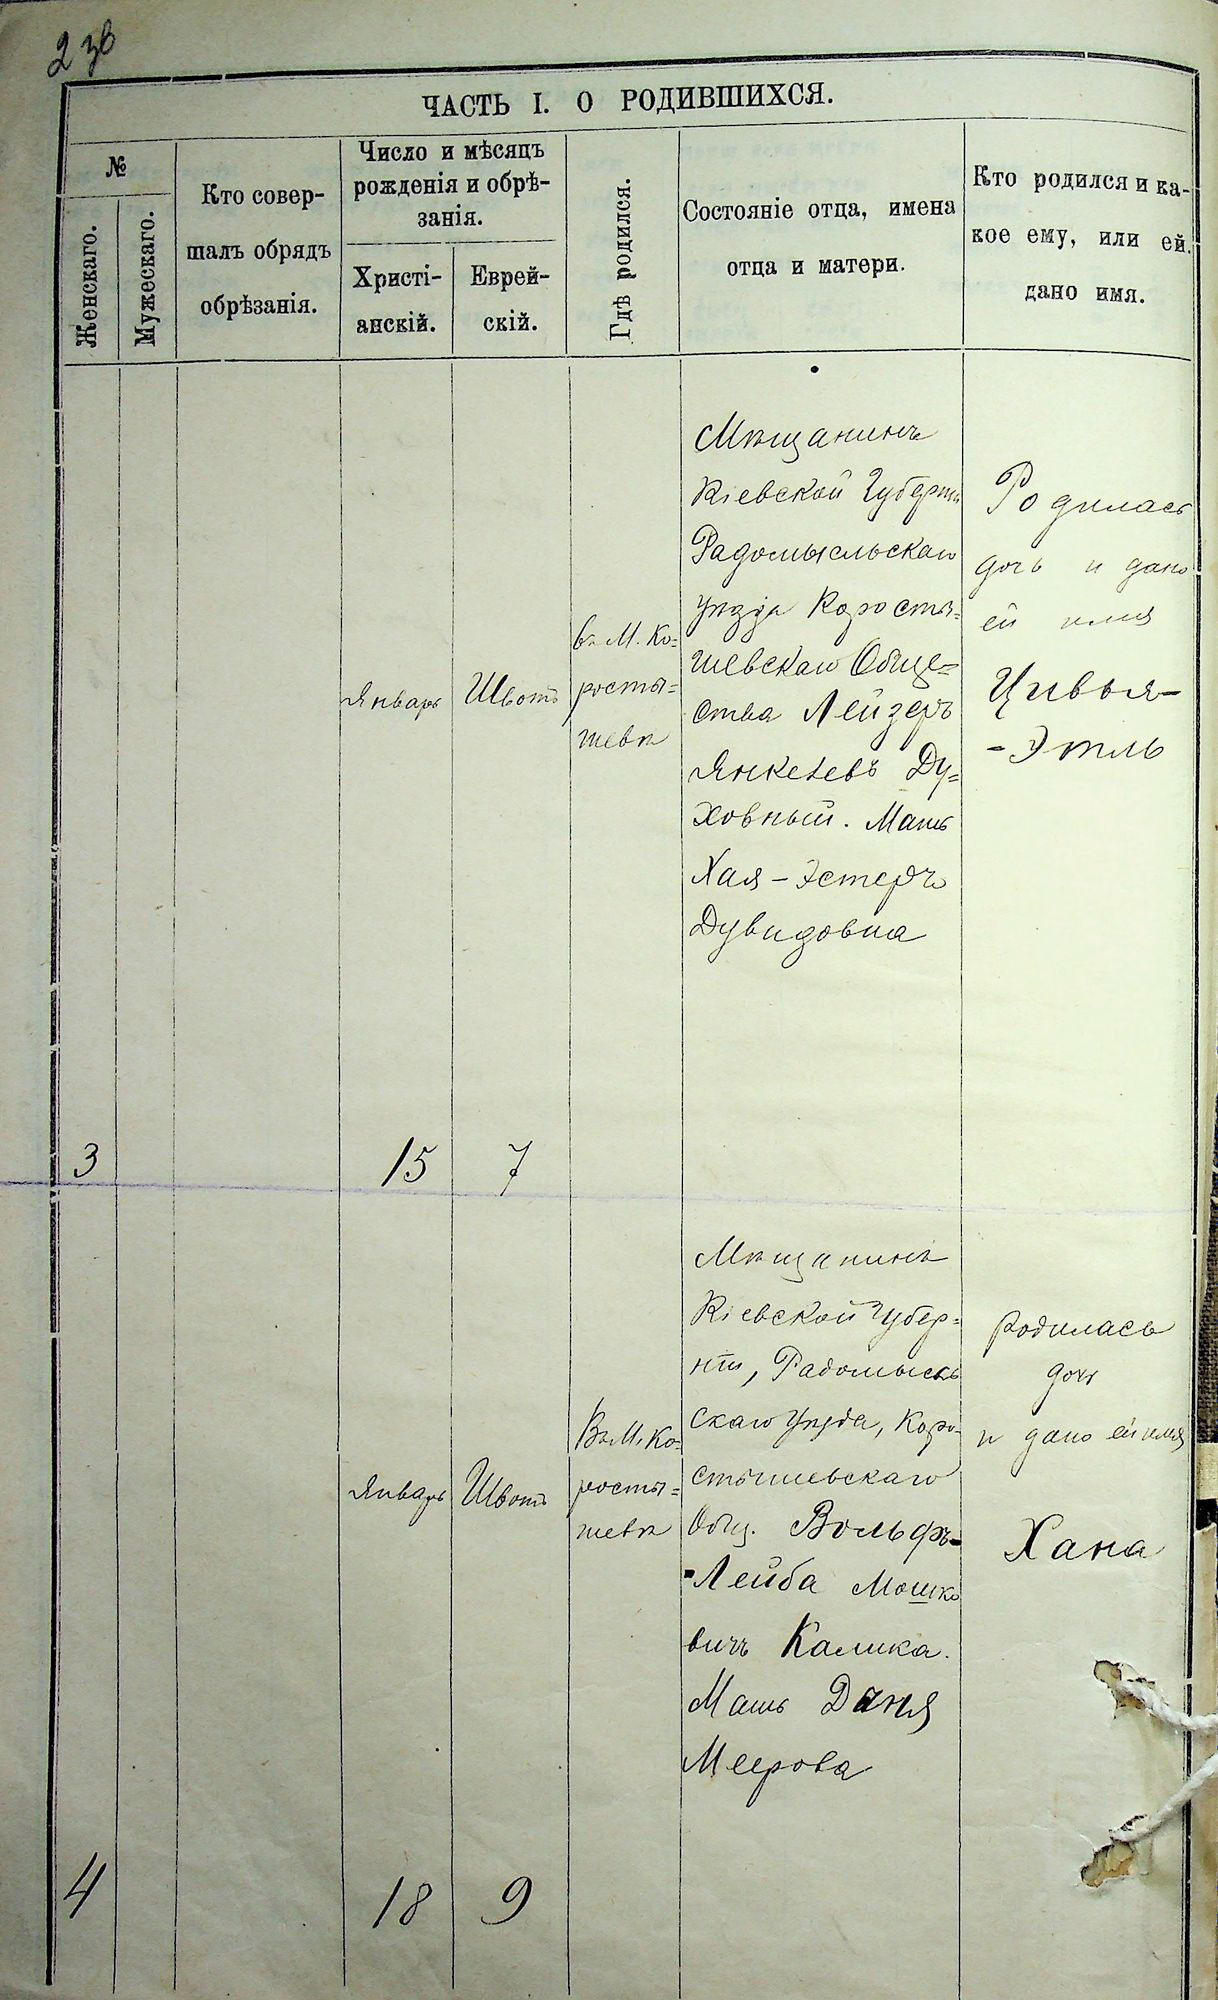 236
ЧАСТЬ I. О РОДИВШИХСЯ.
№
Женскаго.
Мужескаго.
Кто совер-
шалъ обрядъ
обрѣзанія.
Число и мѣсяцъ
рожденія и обрѣ-
занія.
Христі-
анскій.
Еврей-
скій.
Гдѣ родился.
Состояніе отца, имена
отца и матери.
Кто родился и ка-
кое ему, или ей.
дано имя.
3
Январь
15
Швотъ
7
въ М. Ко=
росты=
шевѣ
Мѣщанинъ
Кіевской Губерніи
Радомысльскаго
уѣзда Коросты=
шевскаго Обще=
ства Лейзеръ
Янкелевъ Ду=
ховный. Мать
Хая-Эстеръ
Дувидовна
Родилась
дочь и дано
ей имя
Цивья-
-Этль
4
Январь
18
Швотъ
9
Въ М. Ко=
росты=
шевѣ
Мѣщанинъ
Кіевской Губер=
ніи, Радомысль
скаго Уѣзда, Коро-
стышевскаго
Общ. Вольфъ-
-Лейба Мошко
вичъ Калика.
Мать Даня
Меерова
Родилась
дочь
и дано ей имя
Хана